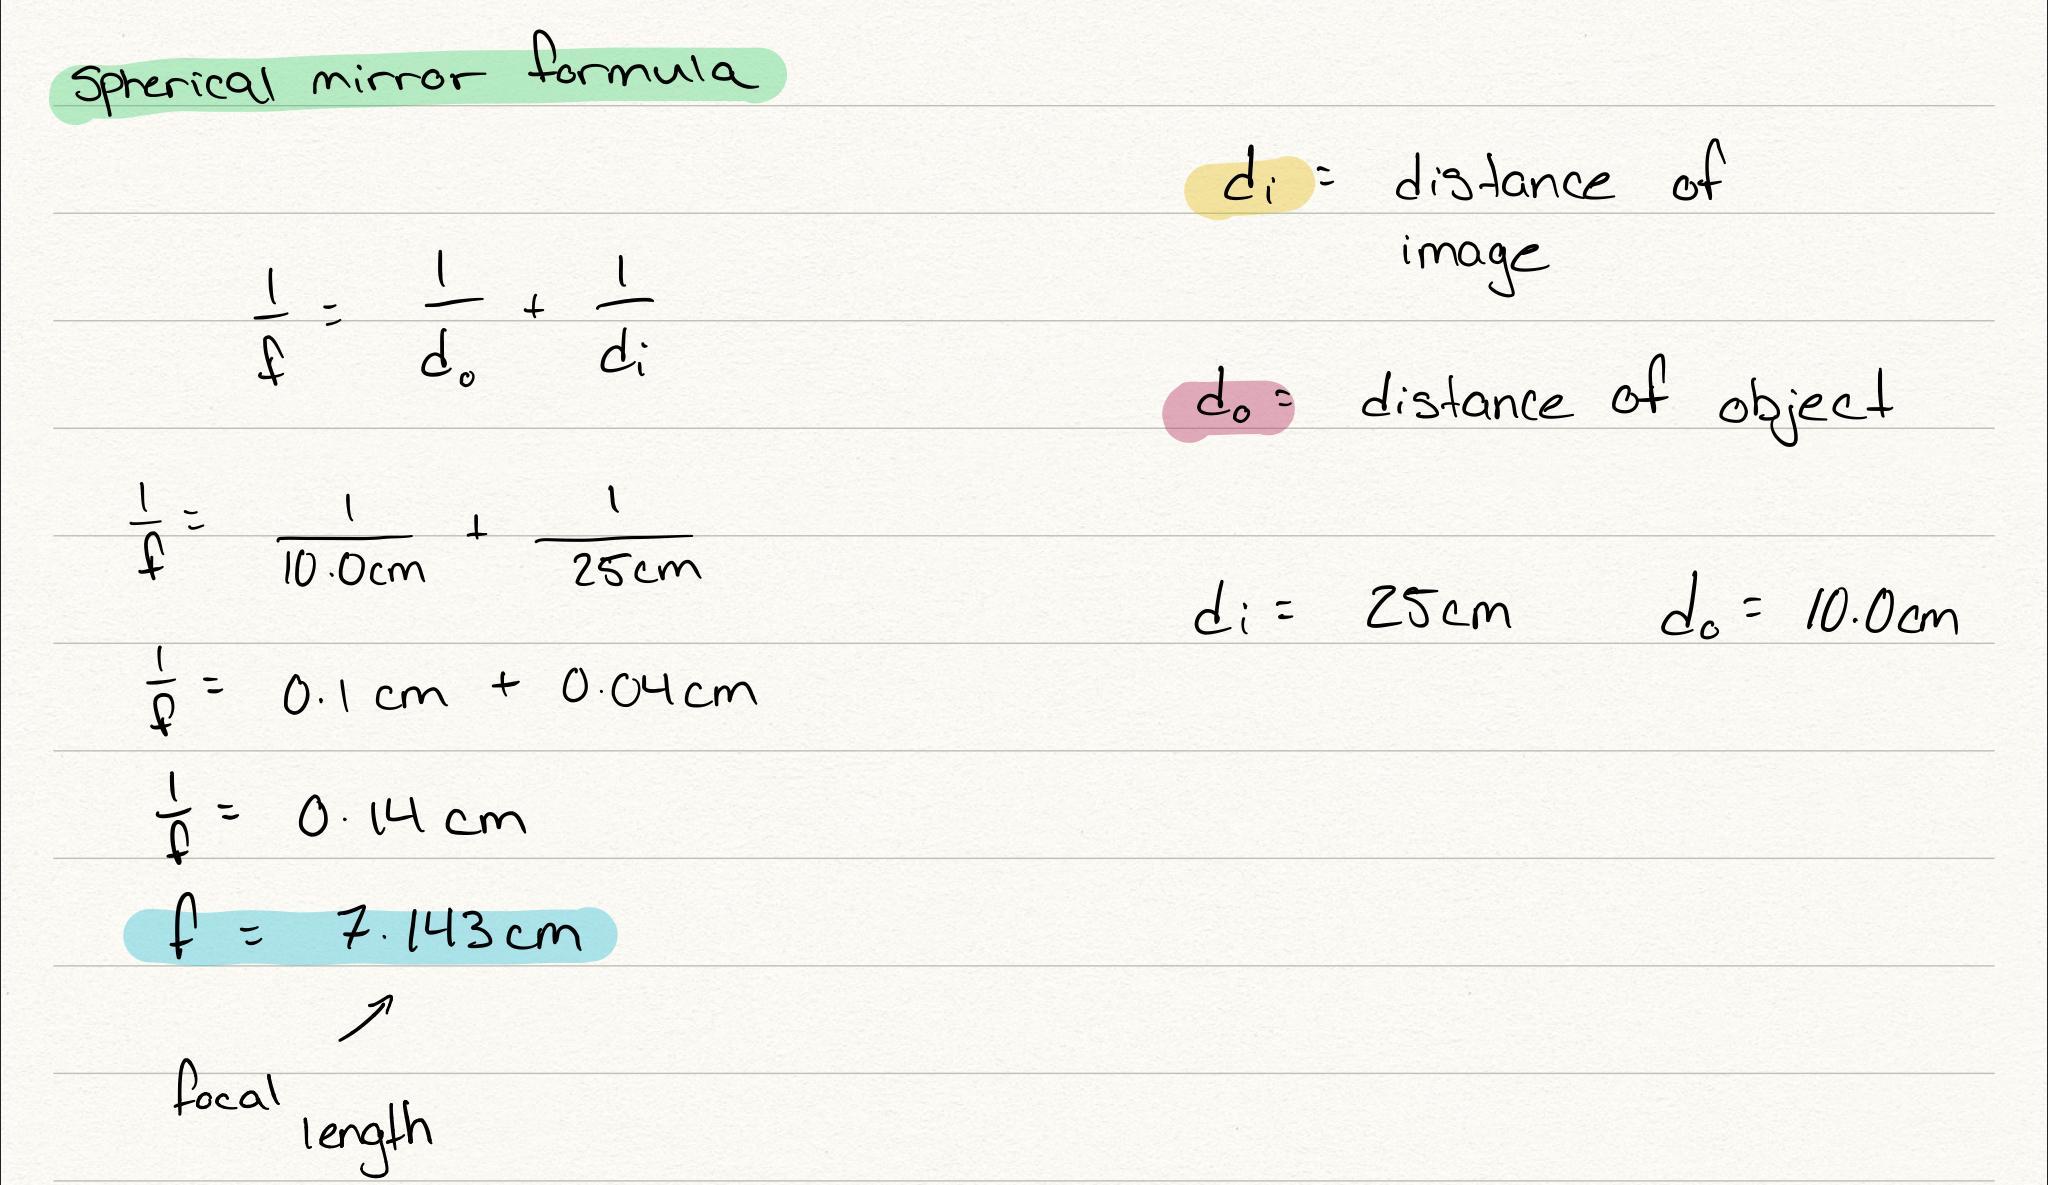 Spherical mirror formula
di = distance of
image
1/f = 1/do + 1/di
do = distance of object
1/f = 1/10.0cm + 1/25cm
di = 25cm do = 10.0cm
1/f = 0.1 cm + 0.04cm
1/f = 0.14 cm
f = 7.143cm
focal
length